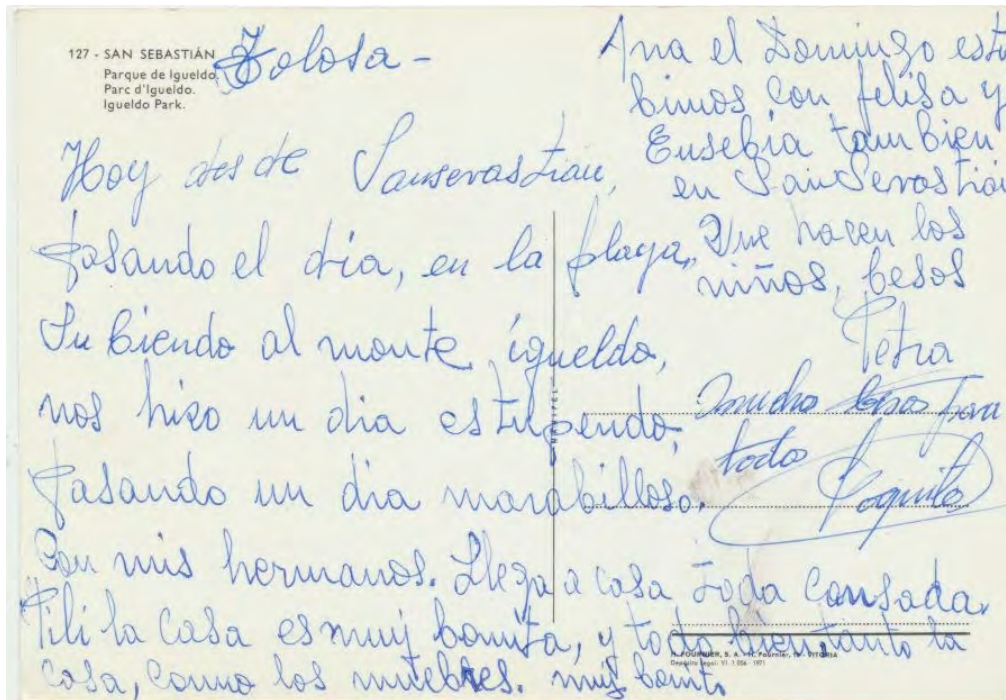 127 - SAN SEBASTIÁN
Parque de Igueldo.
Parc d'Igueldo.
Igueldo Park.
Tolosa -
Hoy desde Sansevastian,
pasando el dia, en la playa,
Subiendo al monte igueldo,
nos hizo un dia estupendo,
pasando un dia marabilloso.
Con mis hermanos. Llega a casa toda Cansada.
Pili la casa es muy bonita, y todo bien tanto la
cosa, como los muebles. muy bonito
Ana el Domingo estu
bimos con felisa y
Eusebia tambien
en San Sevastian
Que hacen los
niños, besos
Petra
mucho besos para
todos
Poquito
H. FOURNIER, S. A. - H. Fournier, - VITORIA
Depósito Legal: VI. 1.056 - 1971